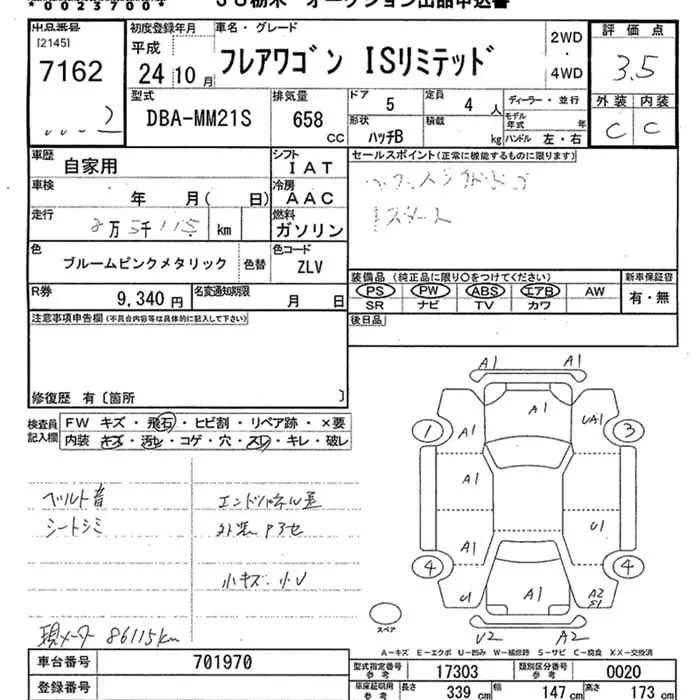 *00237004*
JU栃木 オークション出品申込書
出品番号 初度登録年月 車名・グレード 2WD・4WD 評価点
[2145] 7162
平成 24年 10月
フレアワゴン ISリミテッド
3.5
型式 排気量 ドア 5 定員 4人 ディーラー・並行 外装 内装
DBA-MM21S 658 CC 形状 ハッチB 積載 kg モデル年式 年 ハンドル 左・右 C C
車歴 自家用 シフト IAT セールスポイント(正常に機能するものに限ります)
車検 年 月( 日) 冷房 AAC
走行 km 燃料 ガソリン
色 ブルームピンクメタリック 色替 色コード ZLV
装備品 (純正品に限り○をつけてください) 新車保証書
PS PW ABS エアB AW 有・無
SR ナビ TV カワ
R券 9,340円 名変通知期限 月 日
後日品
注意事項申告欄(不具合内容等は具体的に記入して下さい)
修復歴 有〔箇所 〕
検査員記入欄 FW キズ・飛石・ヒビ割・リペア跡・×要
内装 キズ・汚レ・コゲ・穴・スレ・キレ・破レ
ベルト音
シートシミ
小キズ、小U
現メーター 86115km
A1 A1
A1 UA1
1 A1 3
A1
U1
A1
4 4
U1 A1 A2 S1
U2 A2
スペア
A-キズ E-エクボ U-凹み W-補修跡 S-サビ C-腐食 XX-交換済
車台番号 701970 型式指定番号 参考 17303 類別区分番号 参考 0020
登録番号 車庫証明用 参考 長さ 339cm 幅 147cm 高さ 173cm